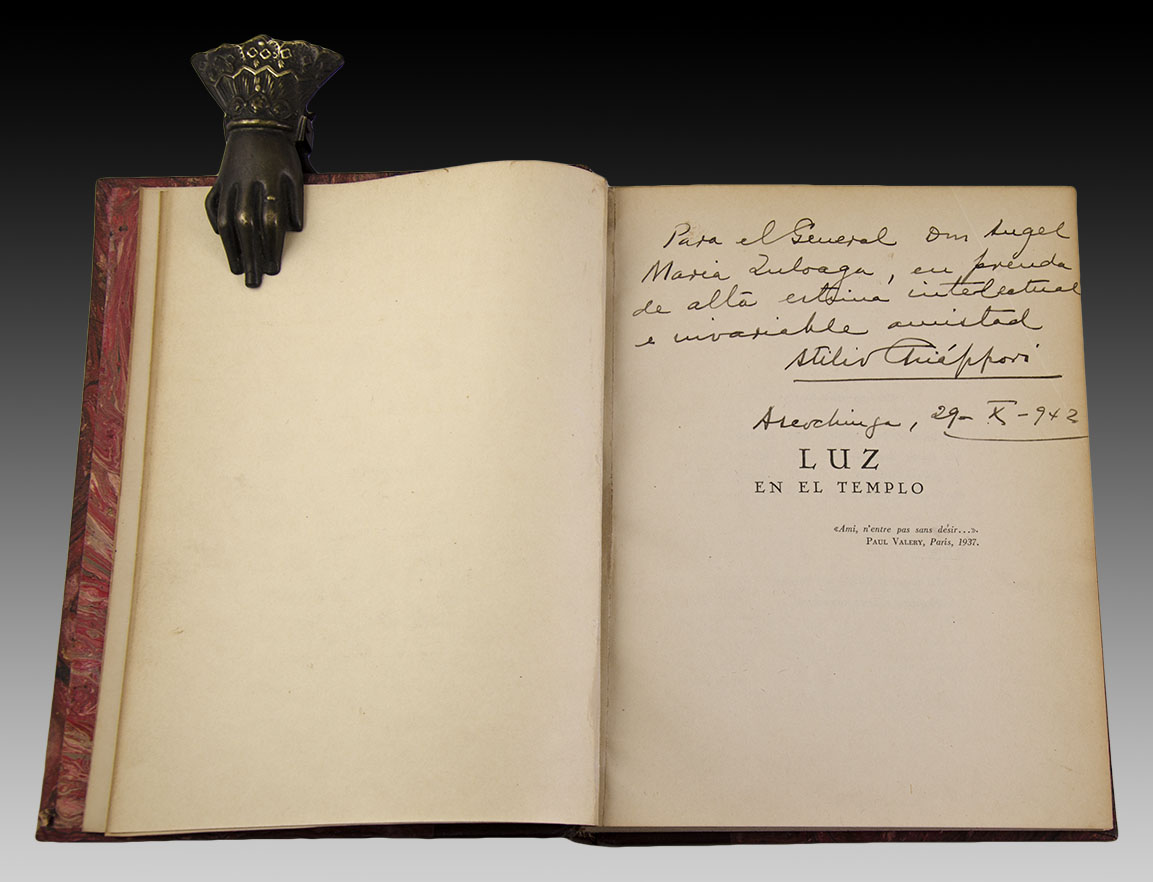 Para el General Don Angel
Maria Zuloaga, en prenda
de alta estima intelectual
e invariable amistad
Atilio Chiáppori
Ascochinga, 29-X-942
LUZ
EN EL TEMPLO
«Ami, n'entre pas sans désir...».
PAUL VALERY, Paris, 1937.